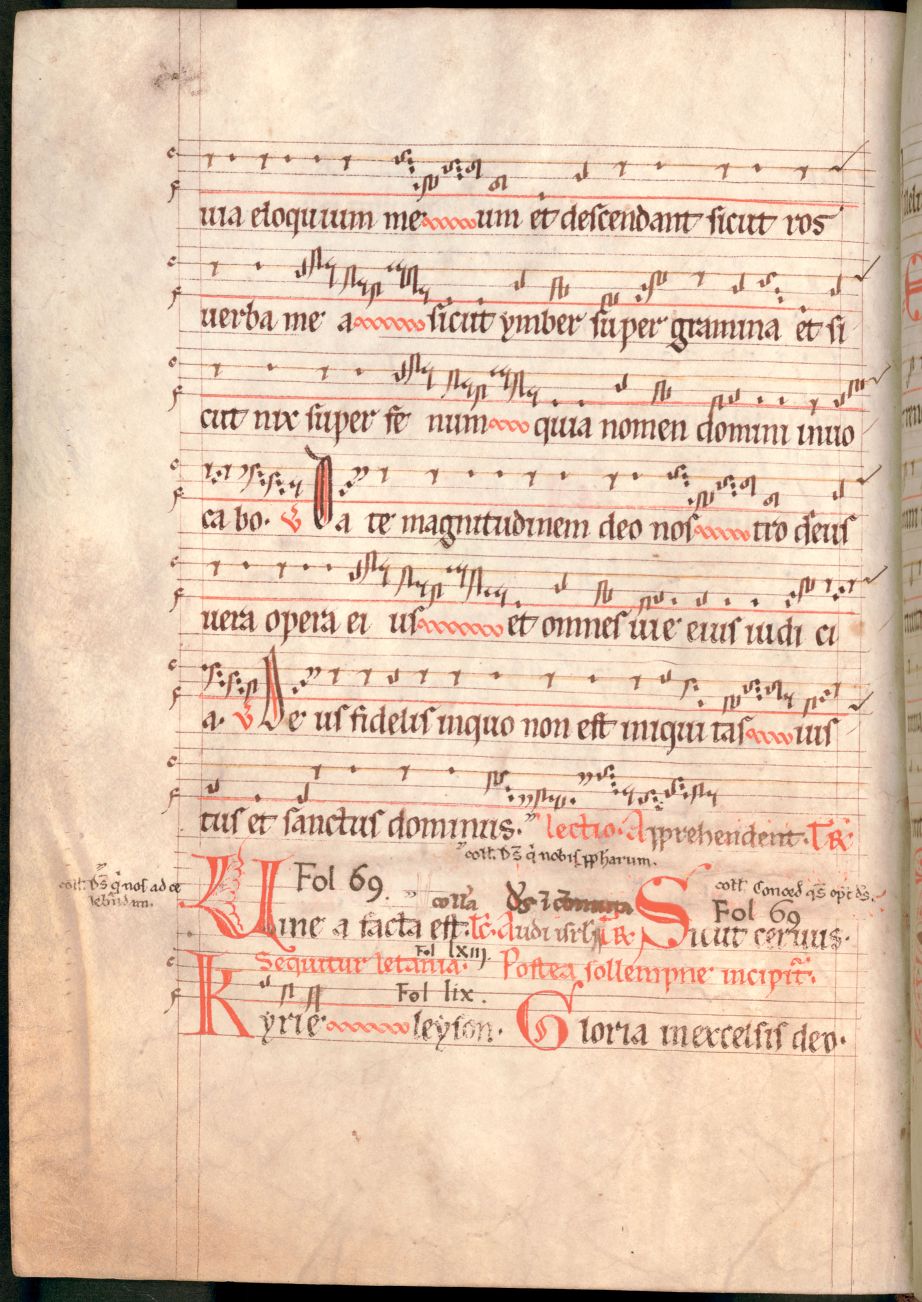 uia eloquium me um et descendant sicut ros
uerba me a sicut ymber super gramina et si
cut nix super fe num quia nomen domini inuo
ca bo. V Da te magnitudinem deo nos tro deus
uera opera ei us et omnes uie eius iudi ci
a. V De us fidelis inquo non est iniqui tas ius
tus et sanctus dominus. lectio. Apprehendent. TR.
coll. Ds q nobis ppharum.
coll. Ds q nos ad ce
lebrandum.
Fol 69. colla Ds
coll. Conced qs opt ds.
Fol 69
Uine a facta est. Lc. Audi isrl TR. Sicut ceruus.
Fol lxiij
Sequitur letania. Postea sollempne incipit.
Fol lix.
Kyrie leyson. Gloria inexcelsis deo.